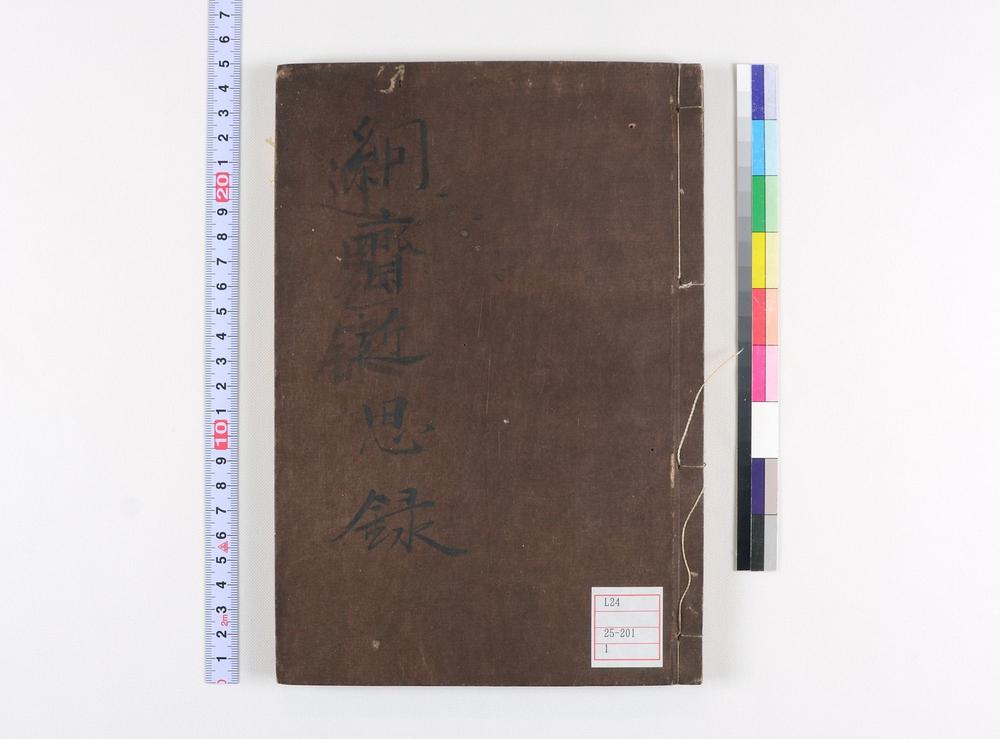 絅齋近思録
L24
25-201
1
7
6
5
4
3
2
1
20
9
8
7
6
5
4
3
2
1
10
9
8
7
6
5
4
3
2m
2
1